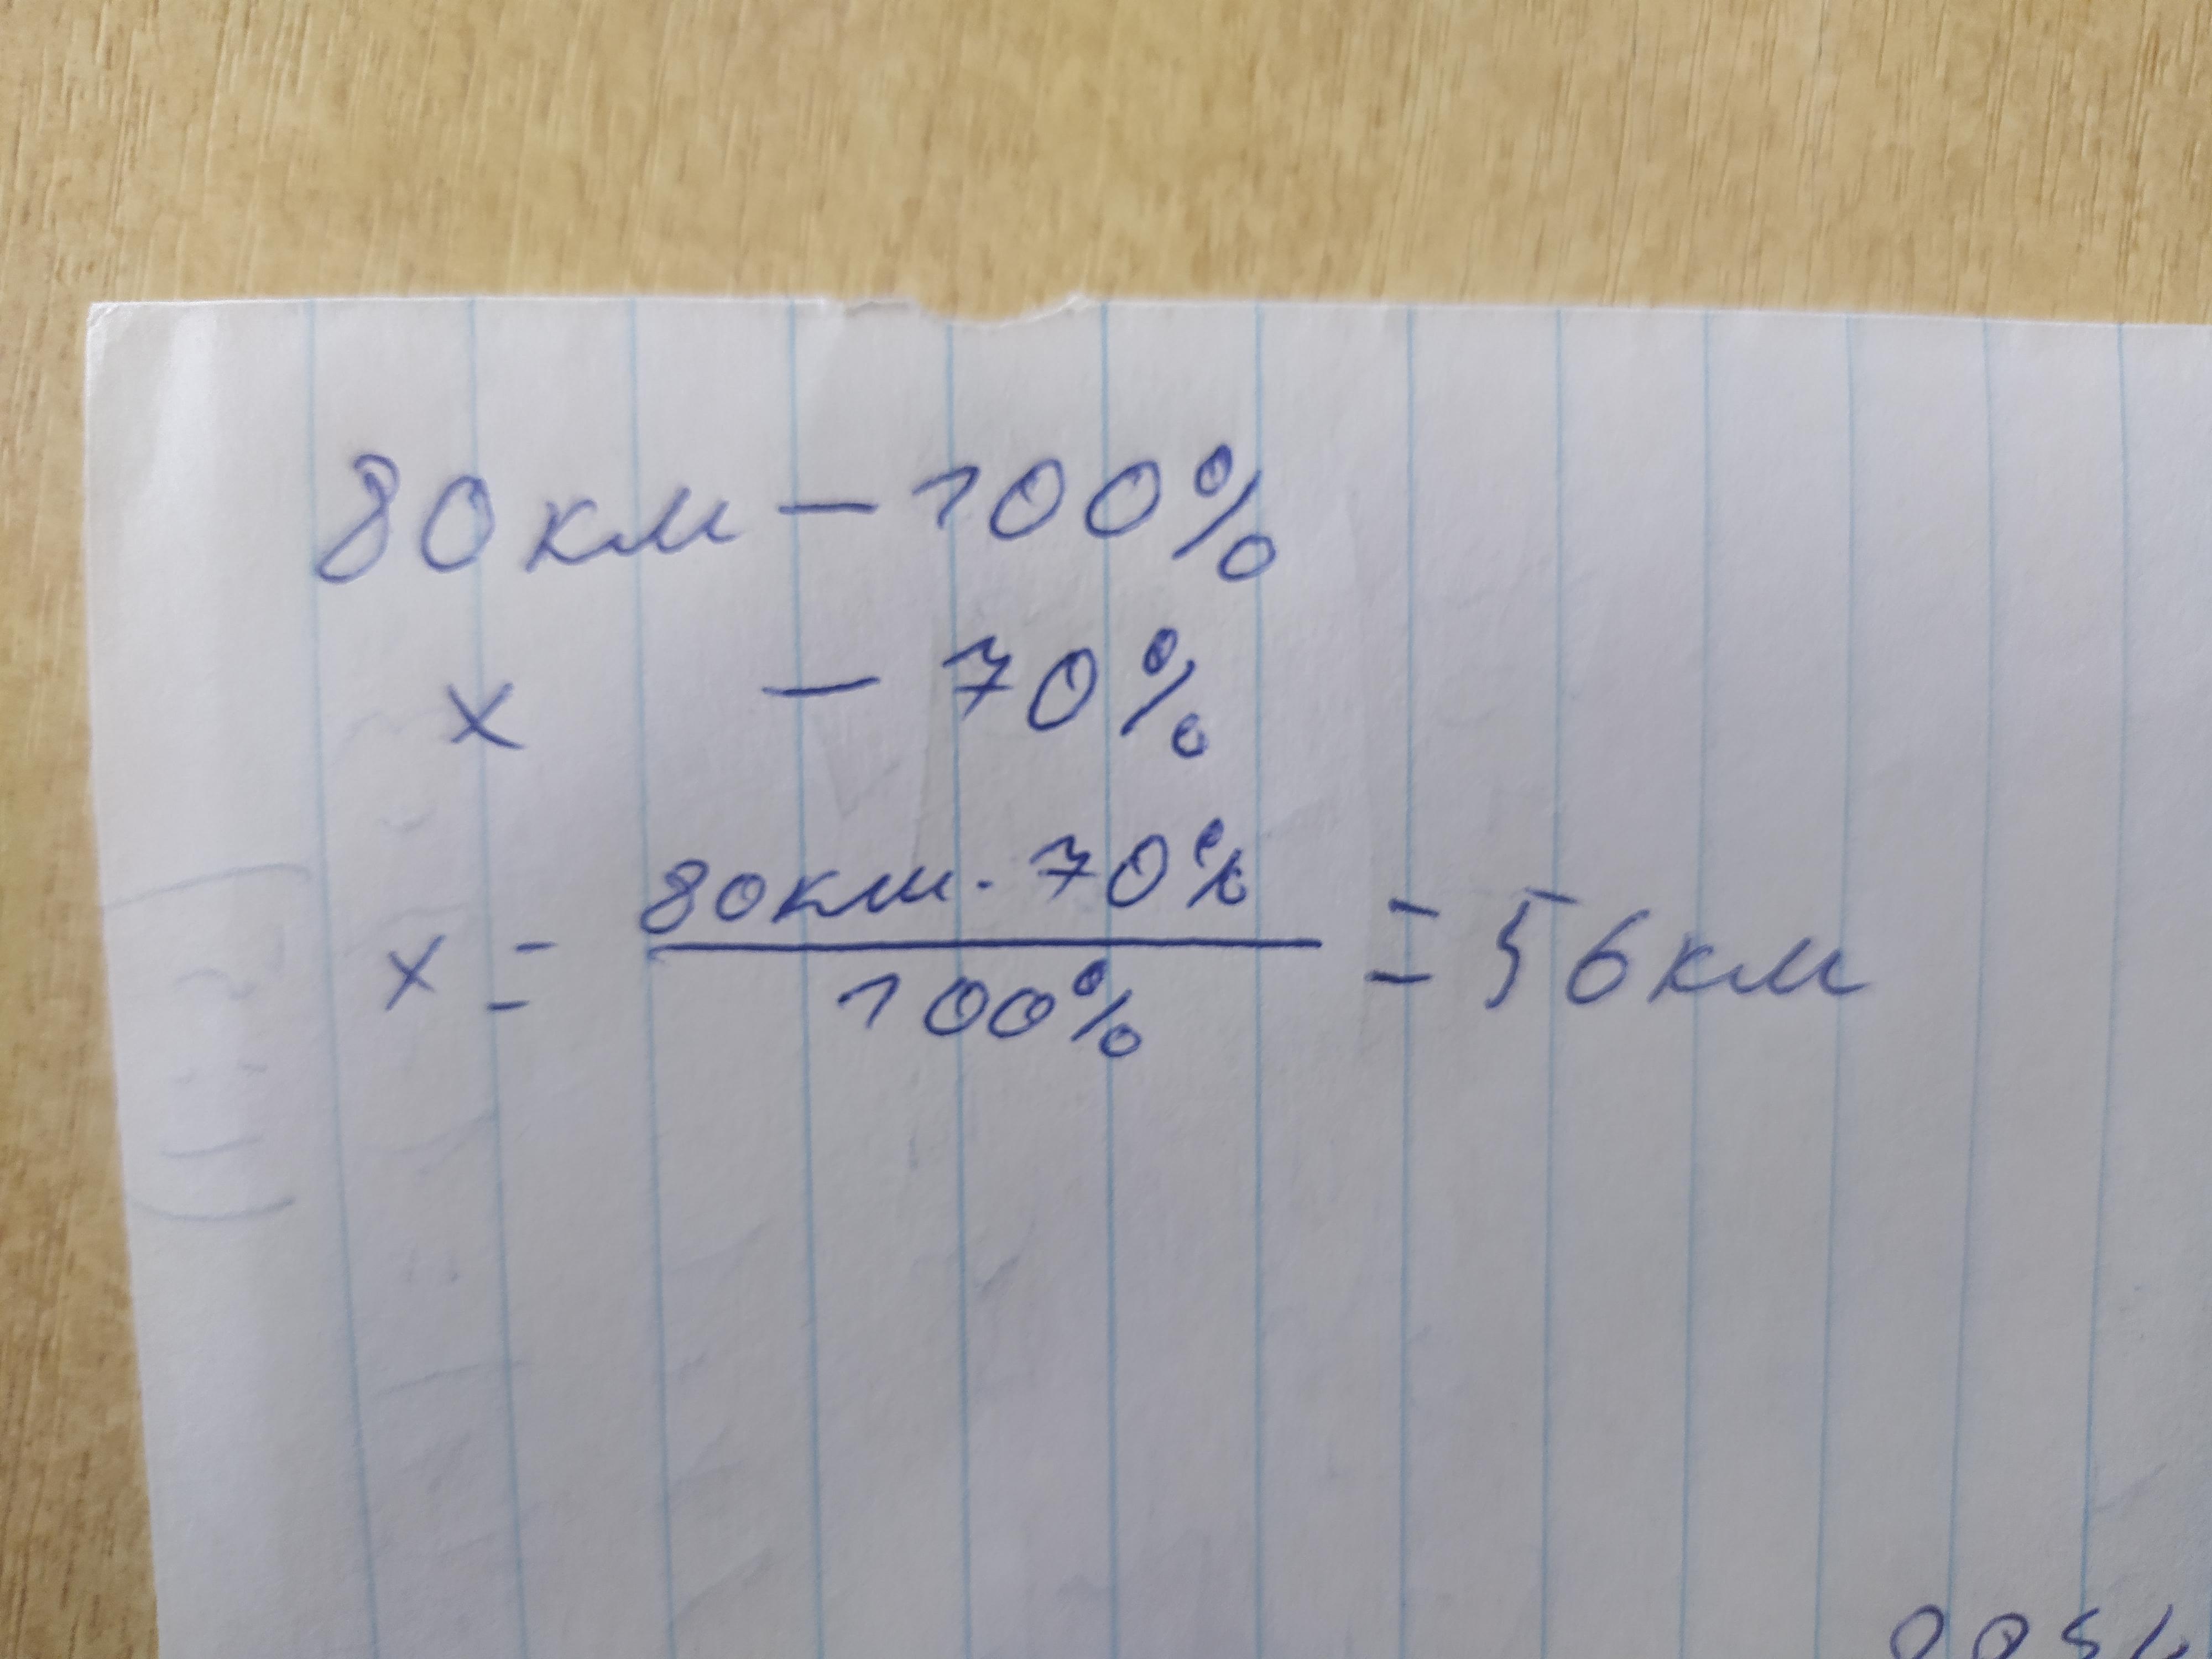 80 км – 100%
x – 70%
x = 80 км · 70% / 100% = 56 км